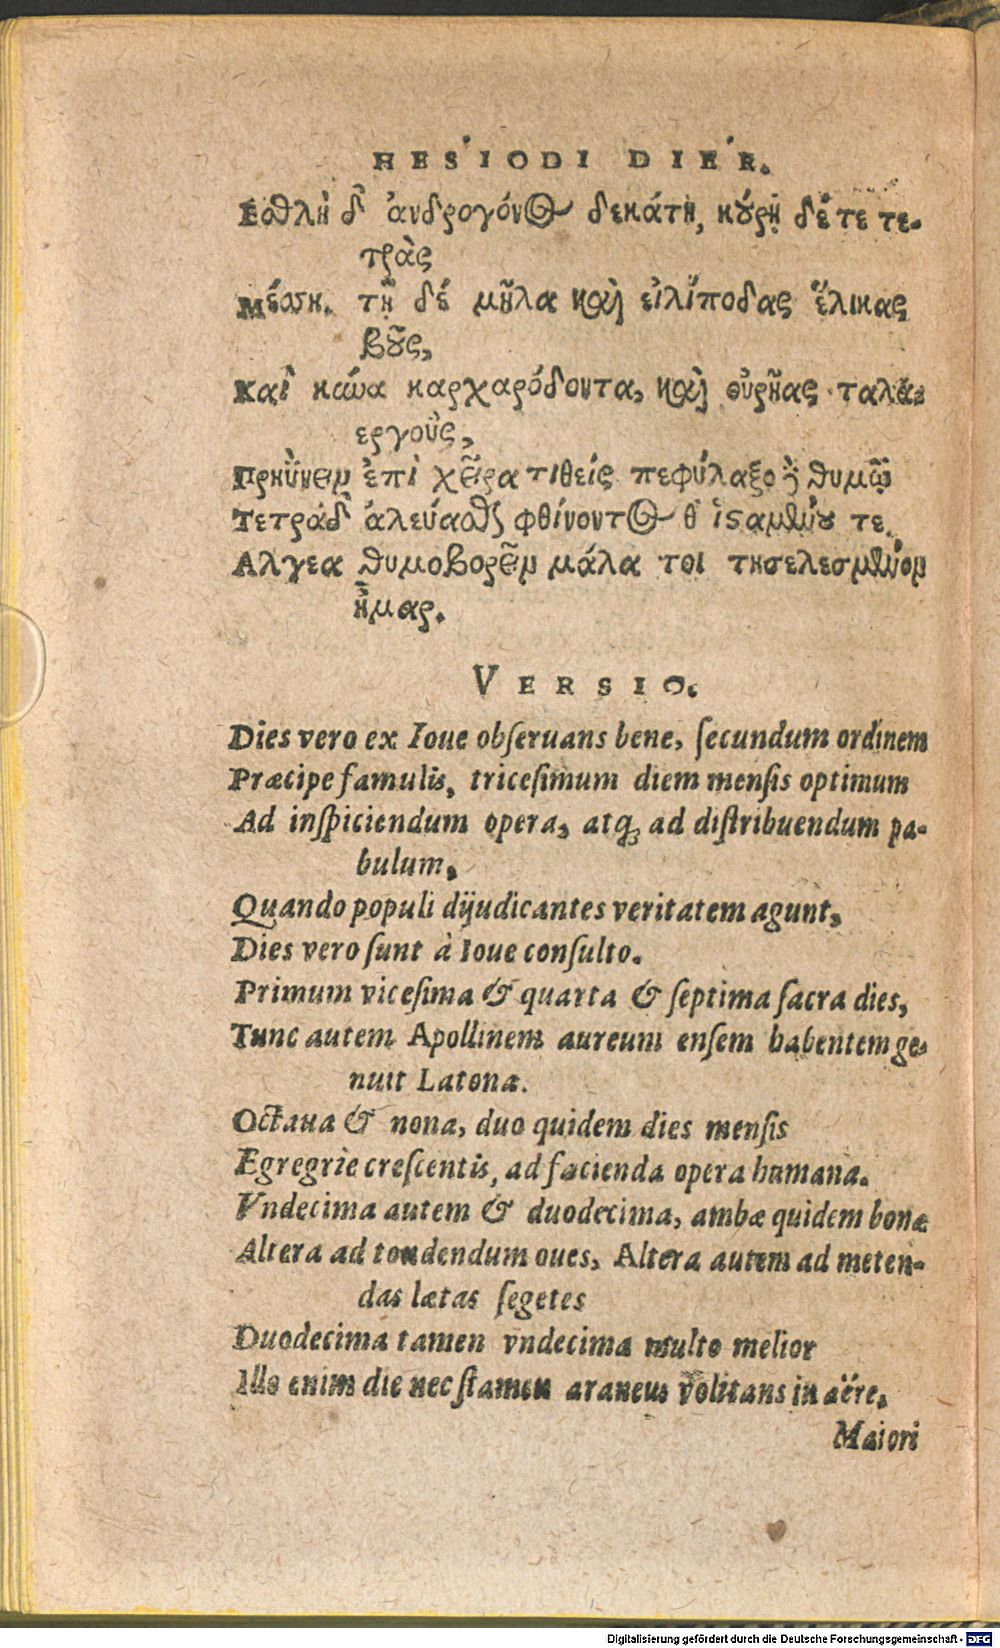 HESIODI DIER.
Ἐσθλὴ δ' ἀνδρογόνος δεκάτη, κούρῃ δέ τε τε-
τρὰς
Μέσση. τῇ δέ μῆλα καὶ εἰλίποδας ἕλικας
βοῦς,
Καὶ κύνα καρχαρόδοντα, καὶ οὐρῆας ταλα-
εργοὺς,
Πρηΰνειν ἐπὶ χεῖρα τιθείς πεφύλαξο δὲ θυμῷ
Τετράδ' ἀλεύασθαι φθίνοντος θ' ἱσταμένου τε,
Αλγεα θυμοβορεῖν μάλα τοι τησελεσμένον
ἦμαρ.
VERSIO.
Dies vero ex Ioue obseruans bene, secundum ordinem
Præcipe famulis, tricesimum diem mensis optimum
Ad inspiciendum opera, atq; ad distribuendum pa-
bulum,
Quando populi dijudicantes veritatem agunt,
Dies vero sunt à Ioue consulto.
Primum vicesima & quarta & septima sacra dies,
Tunc autem Apollinem aureum ensem habentem ge-
nuit Latona.
Octaua & nona, duo quidem dies mensis
Egregrie crescentis, ad facienda opera humana.
Vndecima autem & duodecima, ambæ quidem bonæ
Altera ad tondendum oues, Altera autem ad meten-
das lætas segetes
Duodecima tamen vndecima multo melior
Illo enim die nec stamen araneus volitans in aëre,
Maiori
Digitalisierung gefördert durch die Deutsche Forschungsgemeinschaft - DFG